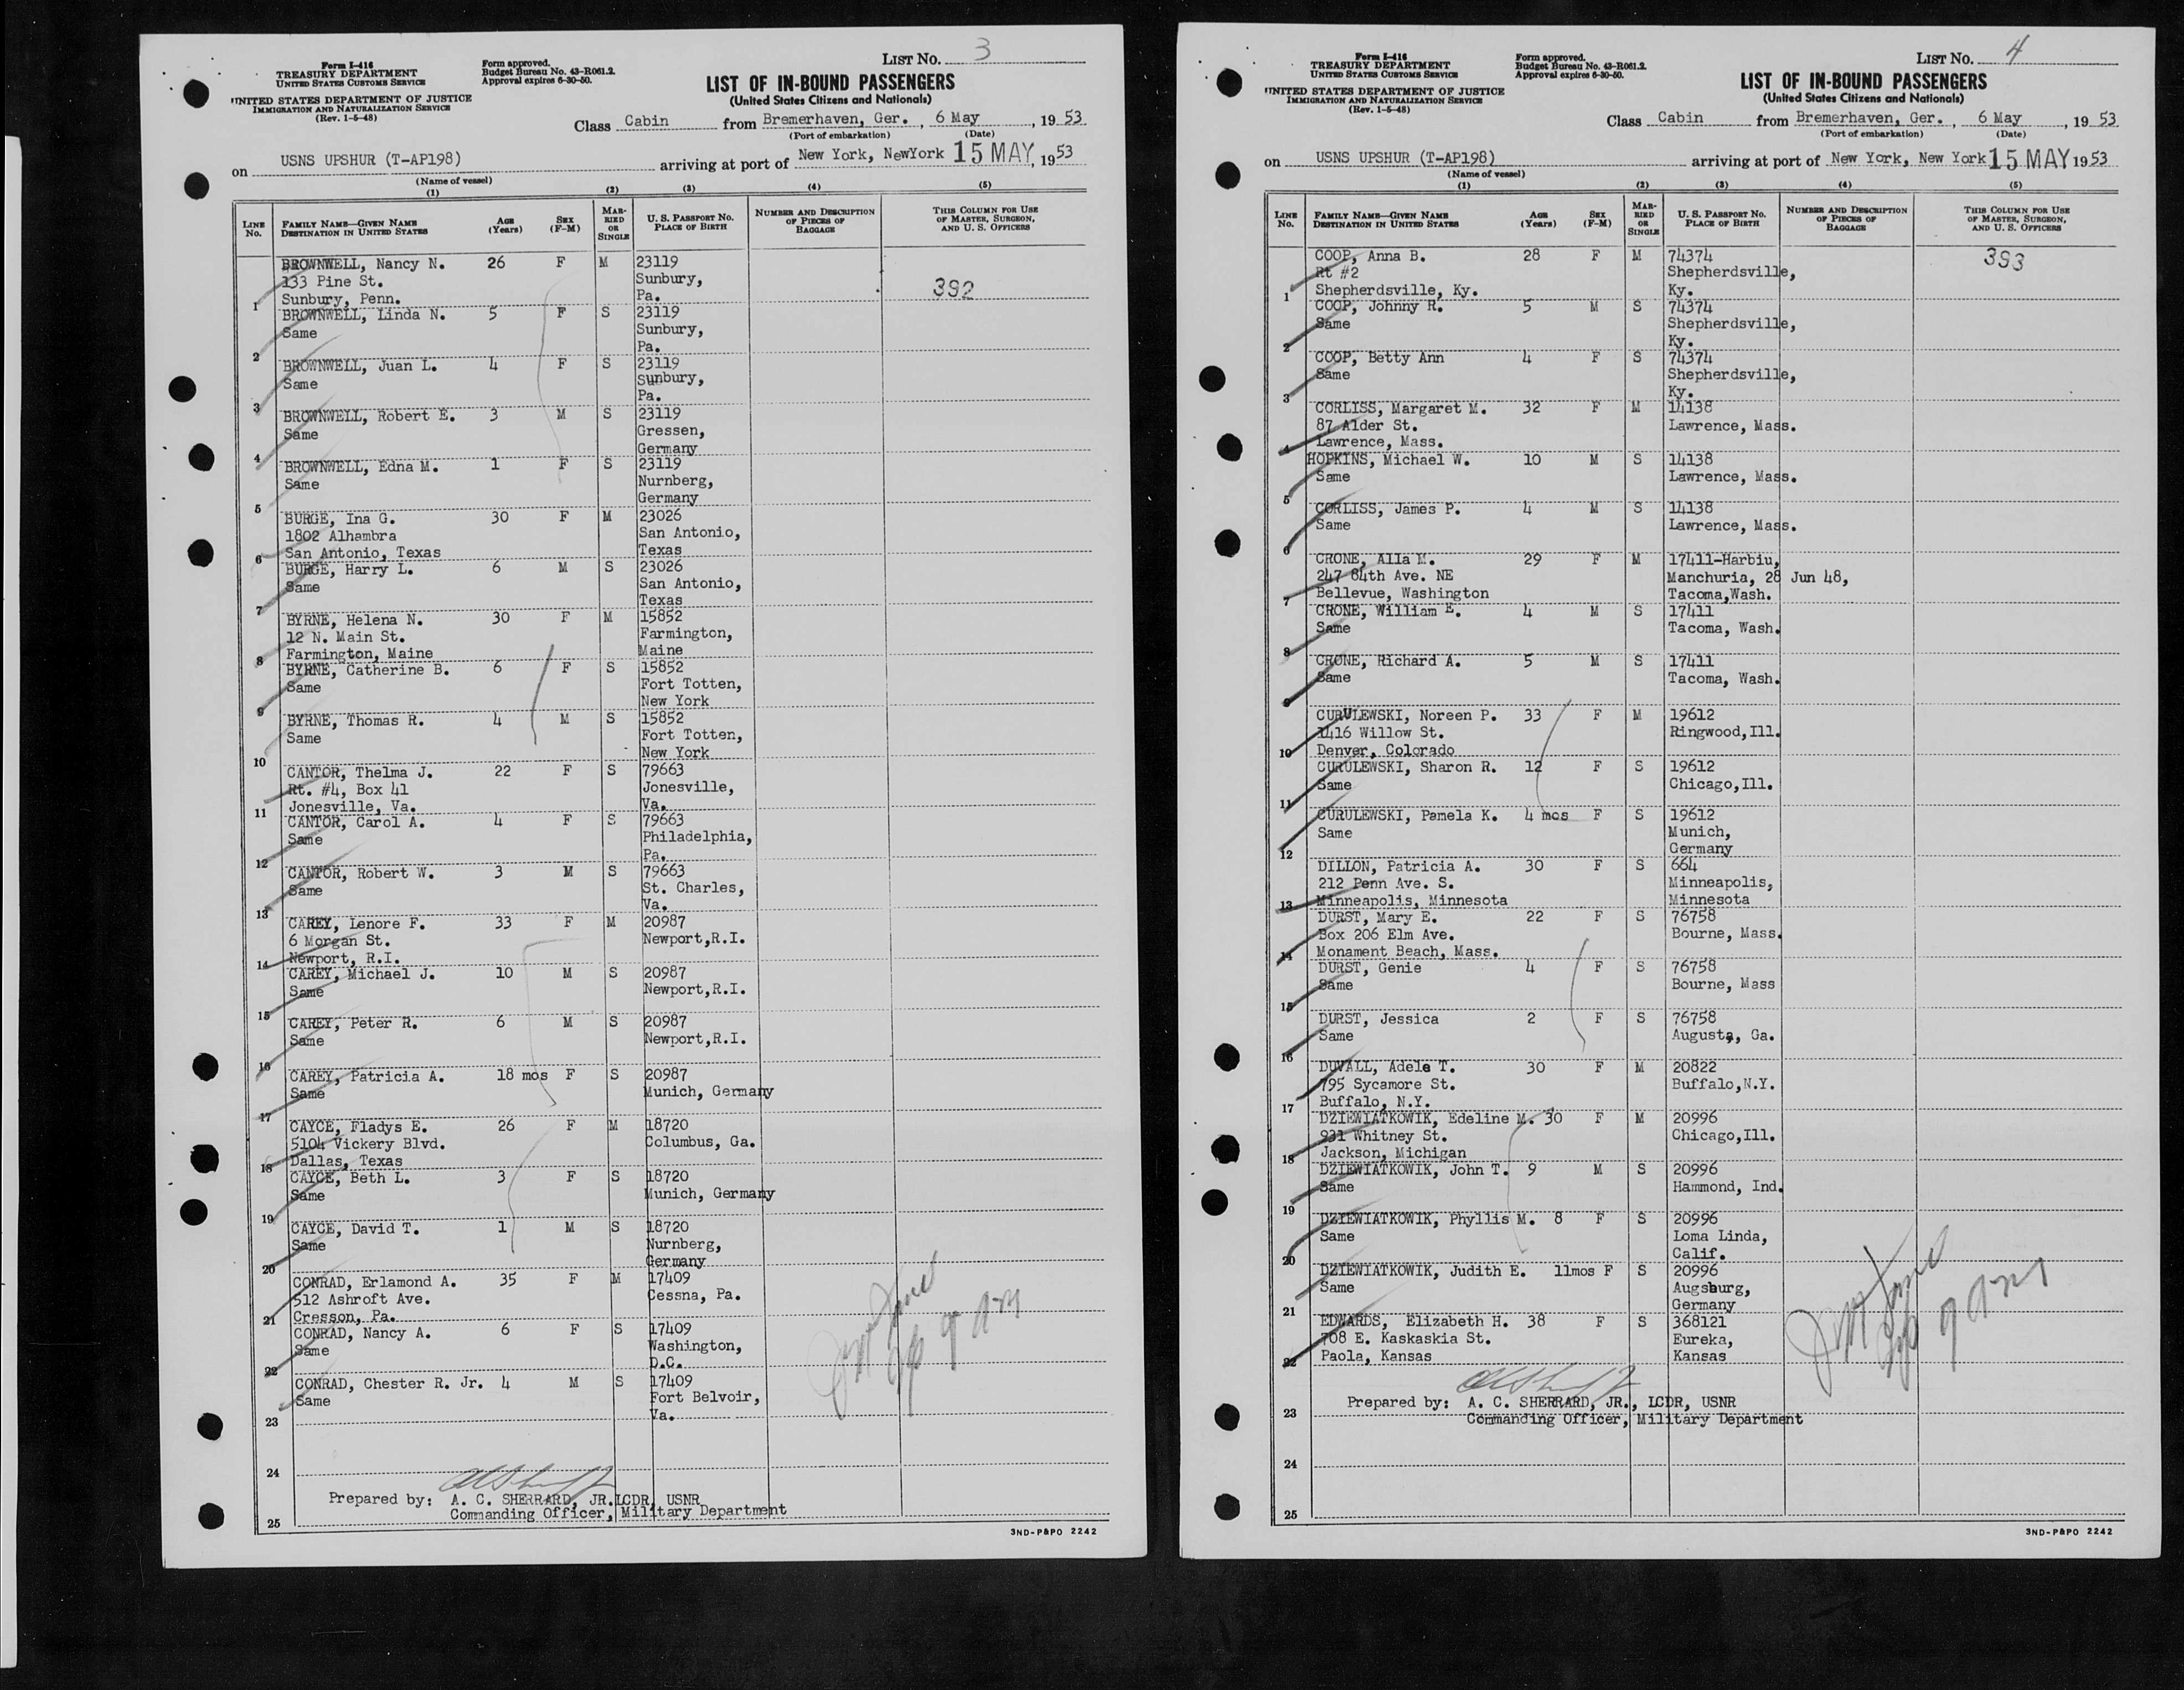 LIST NO. 3
Form I-416
TREASURY DEPARTMENT
UNITED STATES CUSTOMS SERVICE
Form approved.
Budget Bureau No. 43-R061.2.
Approval expires 6-30-50.
UNITED STATES DEPARTMENT OF JUSTICE
IMMIGRATION AND NATURALIZATION SERVICE
(Rev. 1-5-48)
LIST OF IN-BOUND PASSENGERS
(United States Citizens and Nationals)
Class Cabin from Bremerhaven, Ger. , 6 May , 19 53
(Port of embarkation) (Date)
on USNS UPSHUR (T-AP198) arriving at port of New York, NewYork 15 MAY, 19 53
(Name of vessel)
(1) (2) (3) (4) (5)
LINE No. FAMILY NAME—GIVEN NAME DESTINATION IN UNITED STATES AGE (Years) SEX (F-M) MARRIED OR SINGLE U. S. PASSPORT NO. PLACE OF BIRTH NUMBER AND DESCRIPTION OF PIECES OF BAGGAGE THIS COLUMN FOR USE OF MASTER, SURGEON, AND U. S. OFFICERS
BROWNWELL, Nancy N. 26 F M 23119
133 Pine St. Sunbury, 392
1 Sunbury, Penn. Pa.
BROWNWELL, Linda N. 5 F S 23119
Same Sunbury,
2 Pa.
BROWNWELL, Juan L. 4 F S 23119
Same Sunbury,
3 Pa.
BROWNWELL, Robert E. 3 M S 23119
Same Gressen,
4 Germany
BROWNWELL, Edna M. 1 F S 23119
Same Nurnberg,
5 Germany
BURGE, Ina G. 30 F M 23026
1802 Alhambra San Antonio,
6 San Antonio, Texas Texas
BURGE, Harry L. 6 M S 23026
Same San Antonio,
7 Texas
BYRNE, Helena N. 30 F M 15852
12 N. Main St. Farmington,
8 Farmington, Maine Maine
BYRNE, Catherine B. 6 F S 15852
Same Fort Totten,
9 New York
BYRNE, Thomas R. 4 M S 15852
Same Fort Totten,
10 New York
CANTOR, Thelma J. 22 F S 79663
Rt. #4, Box 41 Jonesville,
11 Jonesville, Va. Va.
CANTOR, Carol A. 4 F S 79663
Same Philadelphia,
12 Pa.
CANTOR, Robert W. 3 M S 79663
Same St. Charles,
13 Va.
CAREY, Lenore F. 33 F M 20987
6 Morgan St. Newport,R.I.
14 Newport, R.I.
CAREY, Michael J. 10 M S 20987
Same Newport,R.I.
15
CAREY, Peter R. 6 M S 20987
Same Newport,R.I.
16
CAREY, Patricia A. 18 mos F S 20987
Same Munich, Germany
17
CAYCE, Fladys E. 26 F M 18720
5104 Vickery Blvd. Columbus, Ga.
18 Dallas, Texas
CAYCE, Beth L. 3 F S 18720
Same Munich, Germany
19
CAYCE, David T. 1 M S 18720
Same Nurnberg,
20 Germany
CONRAD, Erlamond A. 35 F M 17409
512 Ashroft Ave. Cessna, Pa.
21 Cresson, Pa.
CONRAD, Nancy A. 6 F S 17409
Same Washington,
22 D.C.
CONRAD, Chester R. Jr. 4 M S 17409
Same Fort Belvoir,
23 Va.
24
Prepared by: A. C. SHERRARD, JR.LCDR, USNR
25 Commanding Officer, Military Department
3ND-P&PO 2242
LIST NO. 4
Form I-416
TREASURY DEPARTMENT
UNITED STATES CUSTOMS SERVICE
Form approved.
Budget Bureau No. 43-R061.2.
Approval expires 6-30-50.
UNITED STATES DEPARTMENT OF JUSTICE
IMMIGRATION AND NATURALIZATION SERVICE
(Rev. 1-5-48)
LIST OF IN-BOUND PASSENGERS
(United States Citizens and Nationals)
Class Cabin from Bremerhaven, Ger. , 6 May , 19 53
(Port of embarkation) (Date)
on USNS UPSHUR (T-AP198) arriving at port of New York, New York 15 MAY 19 53
(Name of vessel)
(1) (2) (3) (4) (5)
LINE No. FAMILY NAME—GIVEN NAME DESTINATION IN UNITED STATES AGE (Years) SEX (F-M) MARRIED OR SINGLE U. S. PASSPORT NO. PLACE OF BIRTH NUMBER AND DESCRIPTION OF PIECES OF BAGGAGE THIS COLUMN FOR USE OF MASTER, SURGEON, AND U. S. OFFICERS
COOP, Anna B. 28 F M 74374 393
Rt #2 Shepherdsville,
1 Shepherdsville, Ky. Ky.
COOP, Johnny R. 5 M S 74374
Same Shepherdsville,
2 Ky.
COOP, Betty Ann 4 F S 74374
Same Shepherdsville,
3 Ky.
CORLISS, Margaret M. 32 F M 14138
87 Alder St. Lawrence, Mass.
4 Lawrence, Mass.
HOPKINS, Michael W. 10 M S 14138
Same Lawrence, Mass.
5
CORLISS, James P. 4 M S 14138
Same Lawrence, Mass.
6
CRONE, Alla M. 29 F M 17411-Harbiu,
247 84th Ave. NE Manchuria, 28 Jun 48,
7 Bellevue, Washington Tacoma,Wash.
CRONE, William E. 4 M S 17411
Same Tacoma, Wash.
8
CRONE, Richard A. 5 M S 17411
Same Tacoma, Wash.
9
CURULEWSKI, Noreen P. 33 F M 19612
1416 Willow St. Ringwood,Ill.
10 Denver, Colorado
CURULEWSKI, Sharon R. 12 F S 19612
Same Chicago,Ill.
11
CURULEWSKI, Pamela K. 4 mos F S 19612
Same Munich,
12 Germany
DILLON, Patricia A. 30 F S 664
212 Penn Ave. S. Minneapolis,
13 Minneapolis, Minnesota Minnesota
DURST, Mary E. 22 F S 76758
Box 206 Elm Ave. Bourne, Mass.
14 Monament Beach, Mass.
DURST, Genie 4 F S 76758
Same Bourne, Mass
15
DURST, Jessica 2 F S 76758
Same Augusta, Ga.
16
DUVALL, Adele T. 30 F M 20822
795 Sycamore St. Buffalo,N.Y.
17 Buffalo, N.Y.
DZIEWIATKOWIK, Edeline M. 30 F M 20996
931 Whitney St. Chicago,Ill.
18 Jackson, Michigan
DZIEWIATKOWIK, John T. 9 M S 20996
Same Hammond, Ind.
19
DZIEWIATKOWIK, Phyllis M. 8 F S 20996
Same Loma Linda,
20 Calif.
DZIEWIATKOWIK, Judith E. 11mos F S 20996
Same Augsburg,
21 Germany
EDWARDS, Elizabeth H. 38 F S 368121
708 E. Kaskaskia St. Eureka,
22 Paola, Kansas Kansas
Prepared by: A. C. SHERRARD, JR., LCDR, USNR
23 Commanding Officer, Military Department
24
25
3ND-P&PO 2242